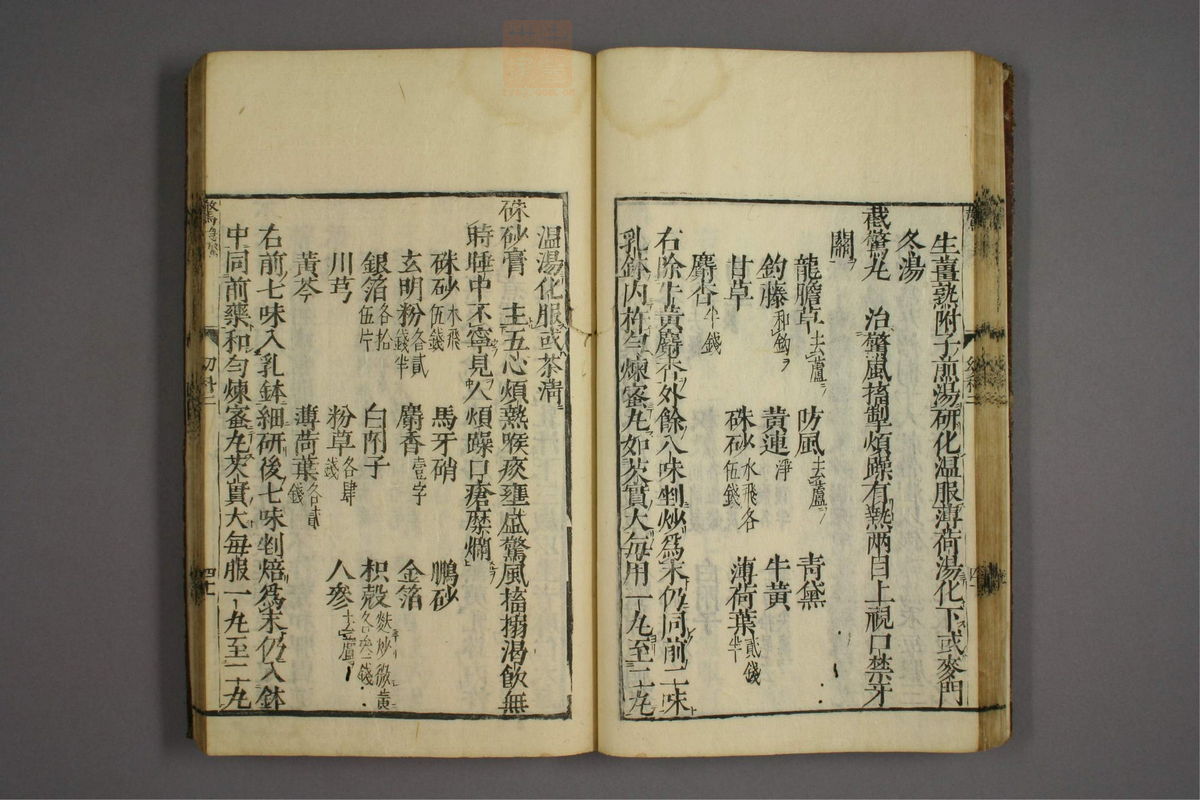 生薑熟附子煎湯研化温服薄荷湯化下或麥門
冬湯
截驚丸　治驚風搐掣煩躁有熱兩目上視口禁牙
關
龍膽草去蘆　防風去蘆　青黛
鈎藤和鈎　黃連淨　牛黃
甘草　硃砂水飛各伍錢　薄荷葉貳錢半
麝香半錢
右除牛黃麝香外餘八味剉炒爲末仍同前二味
乳鉢内杵勻煉蜜丸如芡實大每用一丸至二丸
温湯化服或茶清
硃砂膏　主五心煩熱喉痰壅盛驚風搐搦渴飲無
時睡中不寧見人煩躁口瘡糜爛
硃砂水飛伍錢　馬牙硝　鵬砂
玄明粉各貳錢半　麝香壹字　金箔
銀箔各拾伍片　白附子　枳殼麩炒微黃各叁錢
川芎　粉草各肆錢　人參去蘆
黃芩　薄荷葉各貳錢
右前七味入乳鉢細研後七味剉焙爲末仍入鉢
中同前藥和勻煉蜜丸芡實大每服一丸至二丸
幼科二
四十